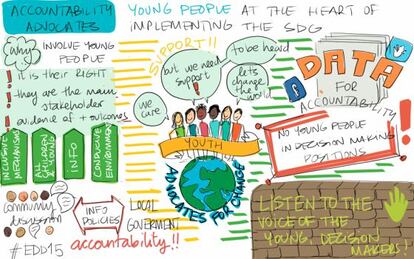 ACCOUNTABILITY
ADVOCATES
YOUNG PEOPLE AT THE HEART OF
IMPLEMENTING THE SDG
why
INVOLVE YOUNG
PEOPLE
! it is their RIGHT
! they are the main
stakeholder
! evidence of + outcomes
INCLUSIVE
MECHANISMS
ALL
CHILDREN
& YOUNG
INFO
CONDUCIVE
ENVIRONMENT
Community
discussion
#EDD15
INFO
POLICIES
LOCAL
GOVERMENT
accountability!!
SUPPORT!!
we
care
but we need
support!
to be heard
let's
change the
world
YOUTH
ADVOCATES FOR CHANGE
DATA
FOR
ACCOUNTABILITY
f
NO YOUNG PEOPLE
IN DECISION MAKING
POSITIONS
LISTEN TO THE
VOICE OF THE
YOUNG, DECISION
MAKERS!